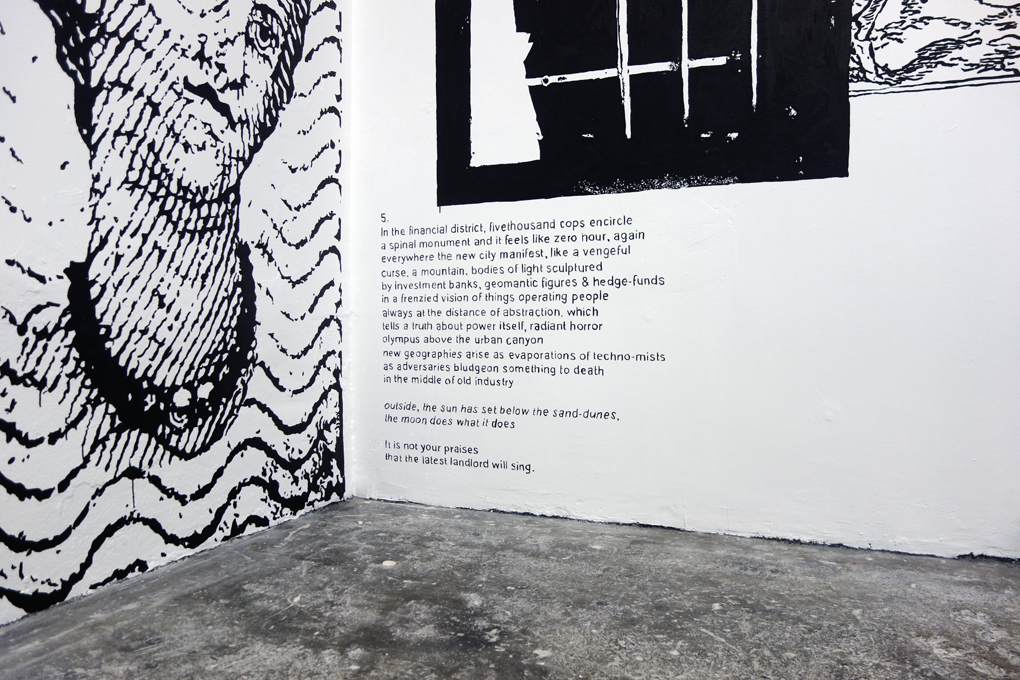 5.
In the financial district, fivethousand cops encircle
a spinal monument and it feels like zero hour, again
everywhere the new city manifest, like a vengeful
curse, a mountain, bodies of light sculptured
by investment banks, geomantic figures & hedge-funds
in a frenzied vision of things operating people
always at the distance of abstraction, which
tells a truth about power itself, radiant horror
olympus above the urban canyon
new geographies arise as evaporations of techno-mists
as adversaries bludgeon something to death
in the middle of old industry
outside, the sun has set below the sand-dunes,
the moon does what it does
It is not your praises
that the latest landlord will sing.